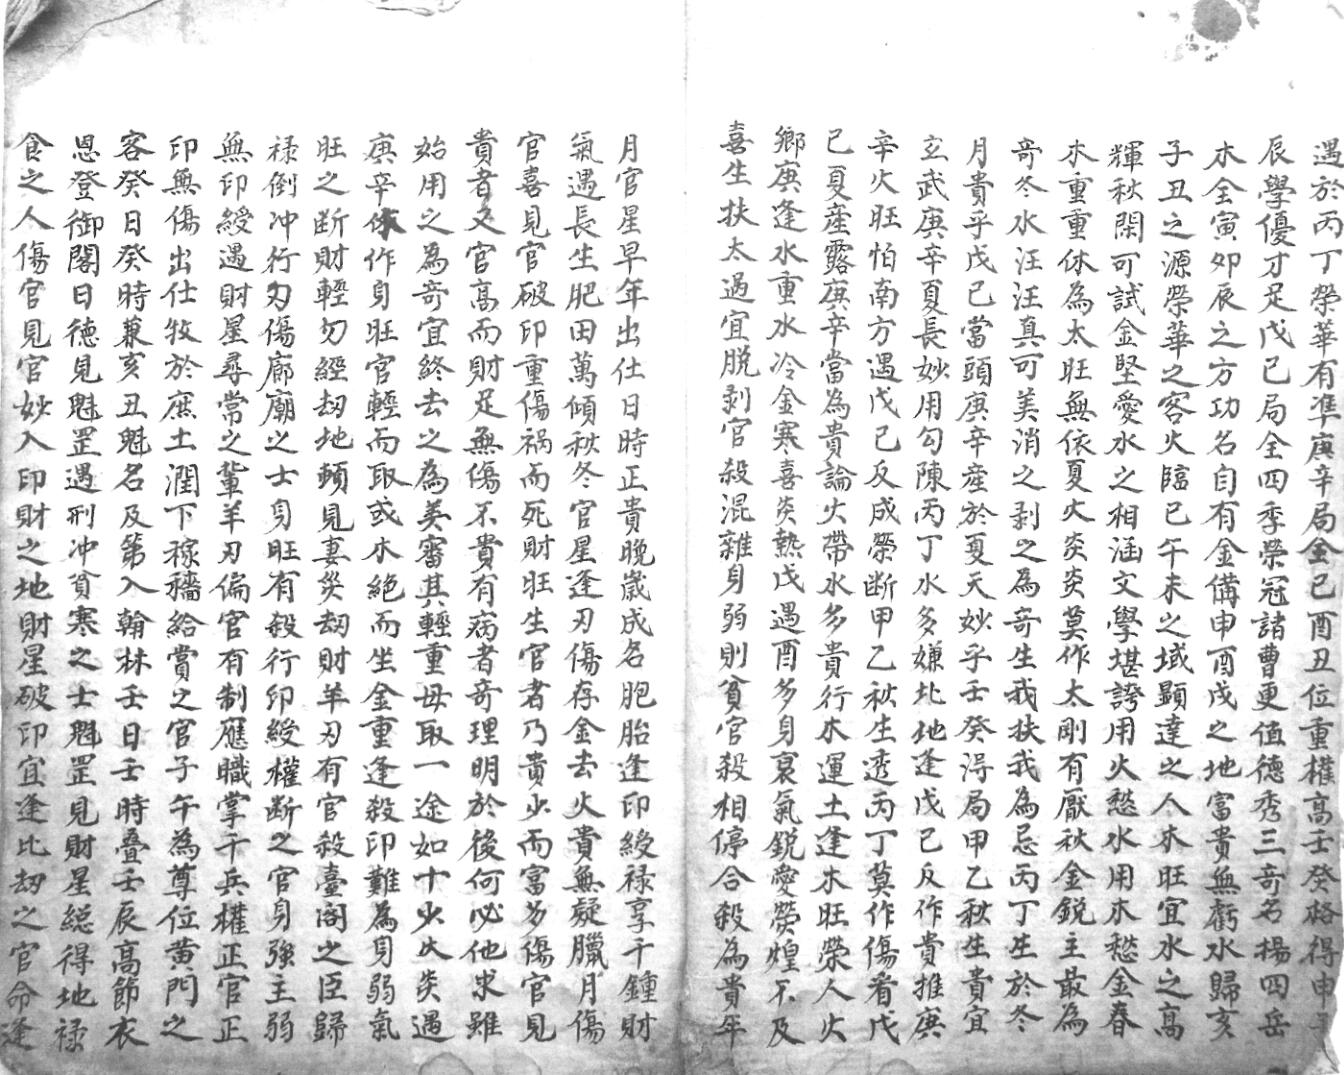 遇於丙丁榮華有準庚辛局全巳酉丑位重權高壬癸格得申子
辰學優才足戊己局全四季榮冠諸曹更值德秀三奇名揚四岳
木全寅卯辰之方功名自有金備申酉戌之地富貴無虧水歸亥
子丑之源榮華之客火臨巳午未之域顯達之人木旺宜水之高
輝秋閑可試金堅愛水之相涵文學堪誇用火愁水用木愁金春
木重重休為太旺無依夏火炎炎莫作太剛有厭秋金銳主最為
奇冬水汪汪真可美消之剥之為奇生我扶我為忌丙丁生於冬
月貴乎戊己當頭庚辛産於夏天妙乎壬癸淂局甲乙秋生貴宜
玄武庚辛夏長妙用勾陳丙丁水多嫌北地逢戊己反作貴推庚
辛火旺怕南方遇戊己反成榮断甲乙秋生透丙丁莫作傷看戊
己夏産露庚辛當為貴論火帶水多貴行木運土逢木旺榮人火
鄉庚逢水重水冷金寒喜炎熱戊遇酉多身衰氣銳愛熒煌不及
喜生扶太過宜脱剥官殺混雜身弱則貧官殺相停合殺為貴年
月官星早年出仕日時正貴晚歲成名胞胎逢印綬禄享千鍾財
氣遇長生肥田萬傾秋冬官星逢刃傷存金去火貴無疑臘月傷
官喜見官破印重傷禍而死財旺生官者乃貴少而富多傷官見
貴者又官高而財足無傷不貴有病者奇理明於後何必他求雖
始用之為奇宜終去之為美審其輕重毋取一途如十少火炎遇
庚辛休作身旺官輕而取或木絶而坐金重逢殺印難為身弱氣
旺之断財輕勿經刼地頻見妻災刼財羊刃有官殺臺閣之臣歸
禄倒冲行刃傷廊廟之士身旺有殺行印綬權断之官身強主弱
無印綬遇財星尋常之輩羊刃偏官有制應職掌千兵權正官正
印無傷出仕牧於庶土潤下稼穡給賞之官子午為尊位黄門之
客癸日癸時兼亥丑魁名及第入翰林壬日壬時疊壬辰高節衣
恩登御閣日德見魁罡遇刑冲貧寒之士魁罡見財星縂得地禄
食之人傷官見官妙入印財之地財星破印宜逢比刼之官命逢